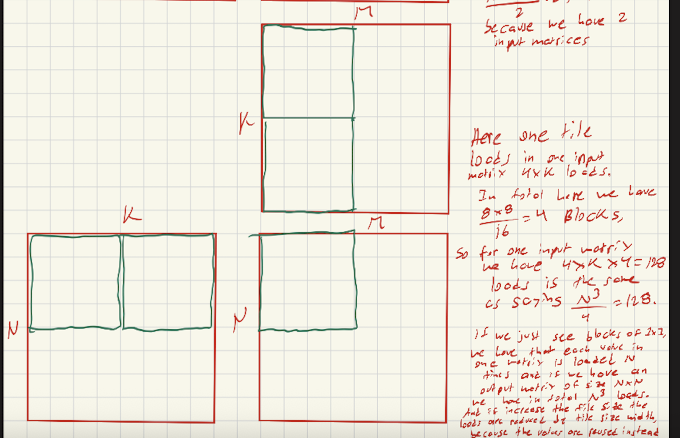 2
because we have 2
input matrices
M
K
Here one tile
loads in one input
matrix 4xK loads.
In total here we have
8x8
16
=4 Blocks,
M
K
N
N
So for one input matrix
we have 4xKx4=128
loads is the same
as saying N³
4
=128.
If we just see blocks of 1x1,
we have that each value in
one matrix is loaded N
times and if we have an
output matrix of size NxN
we have in total N³ loads.
And if increase the tile size the
loads are reduced by tile size width,
because the values are reused instead